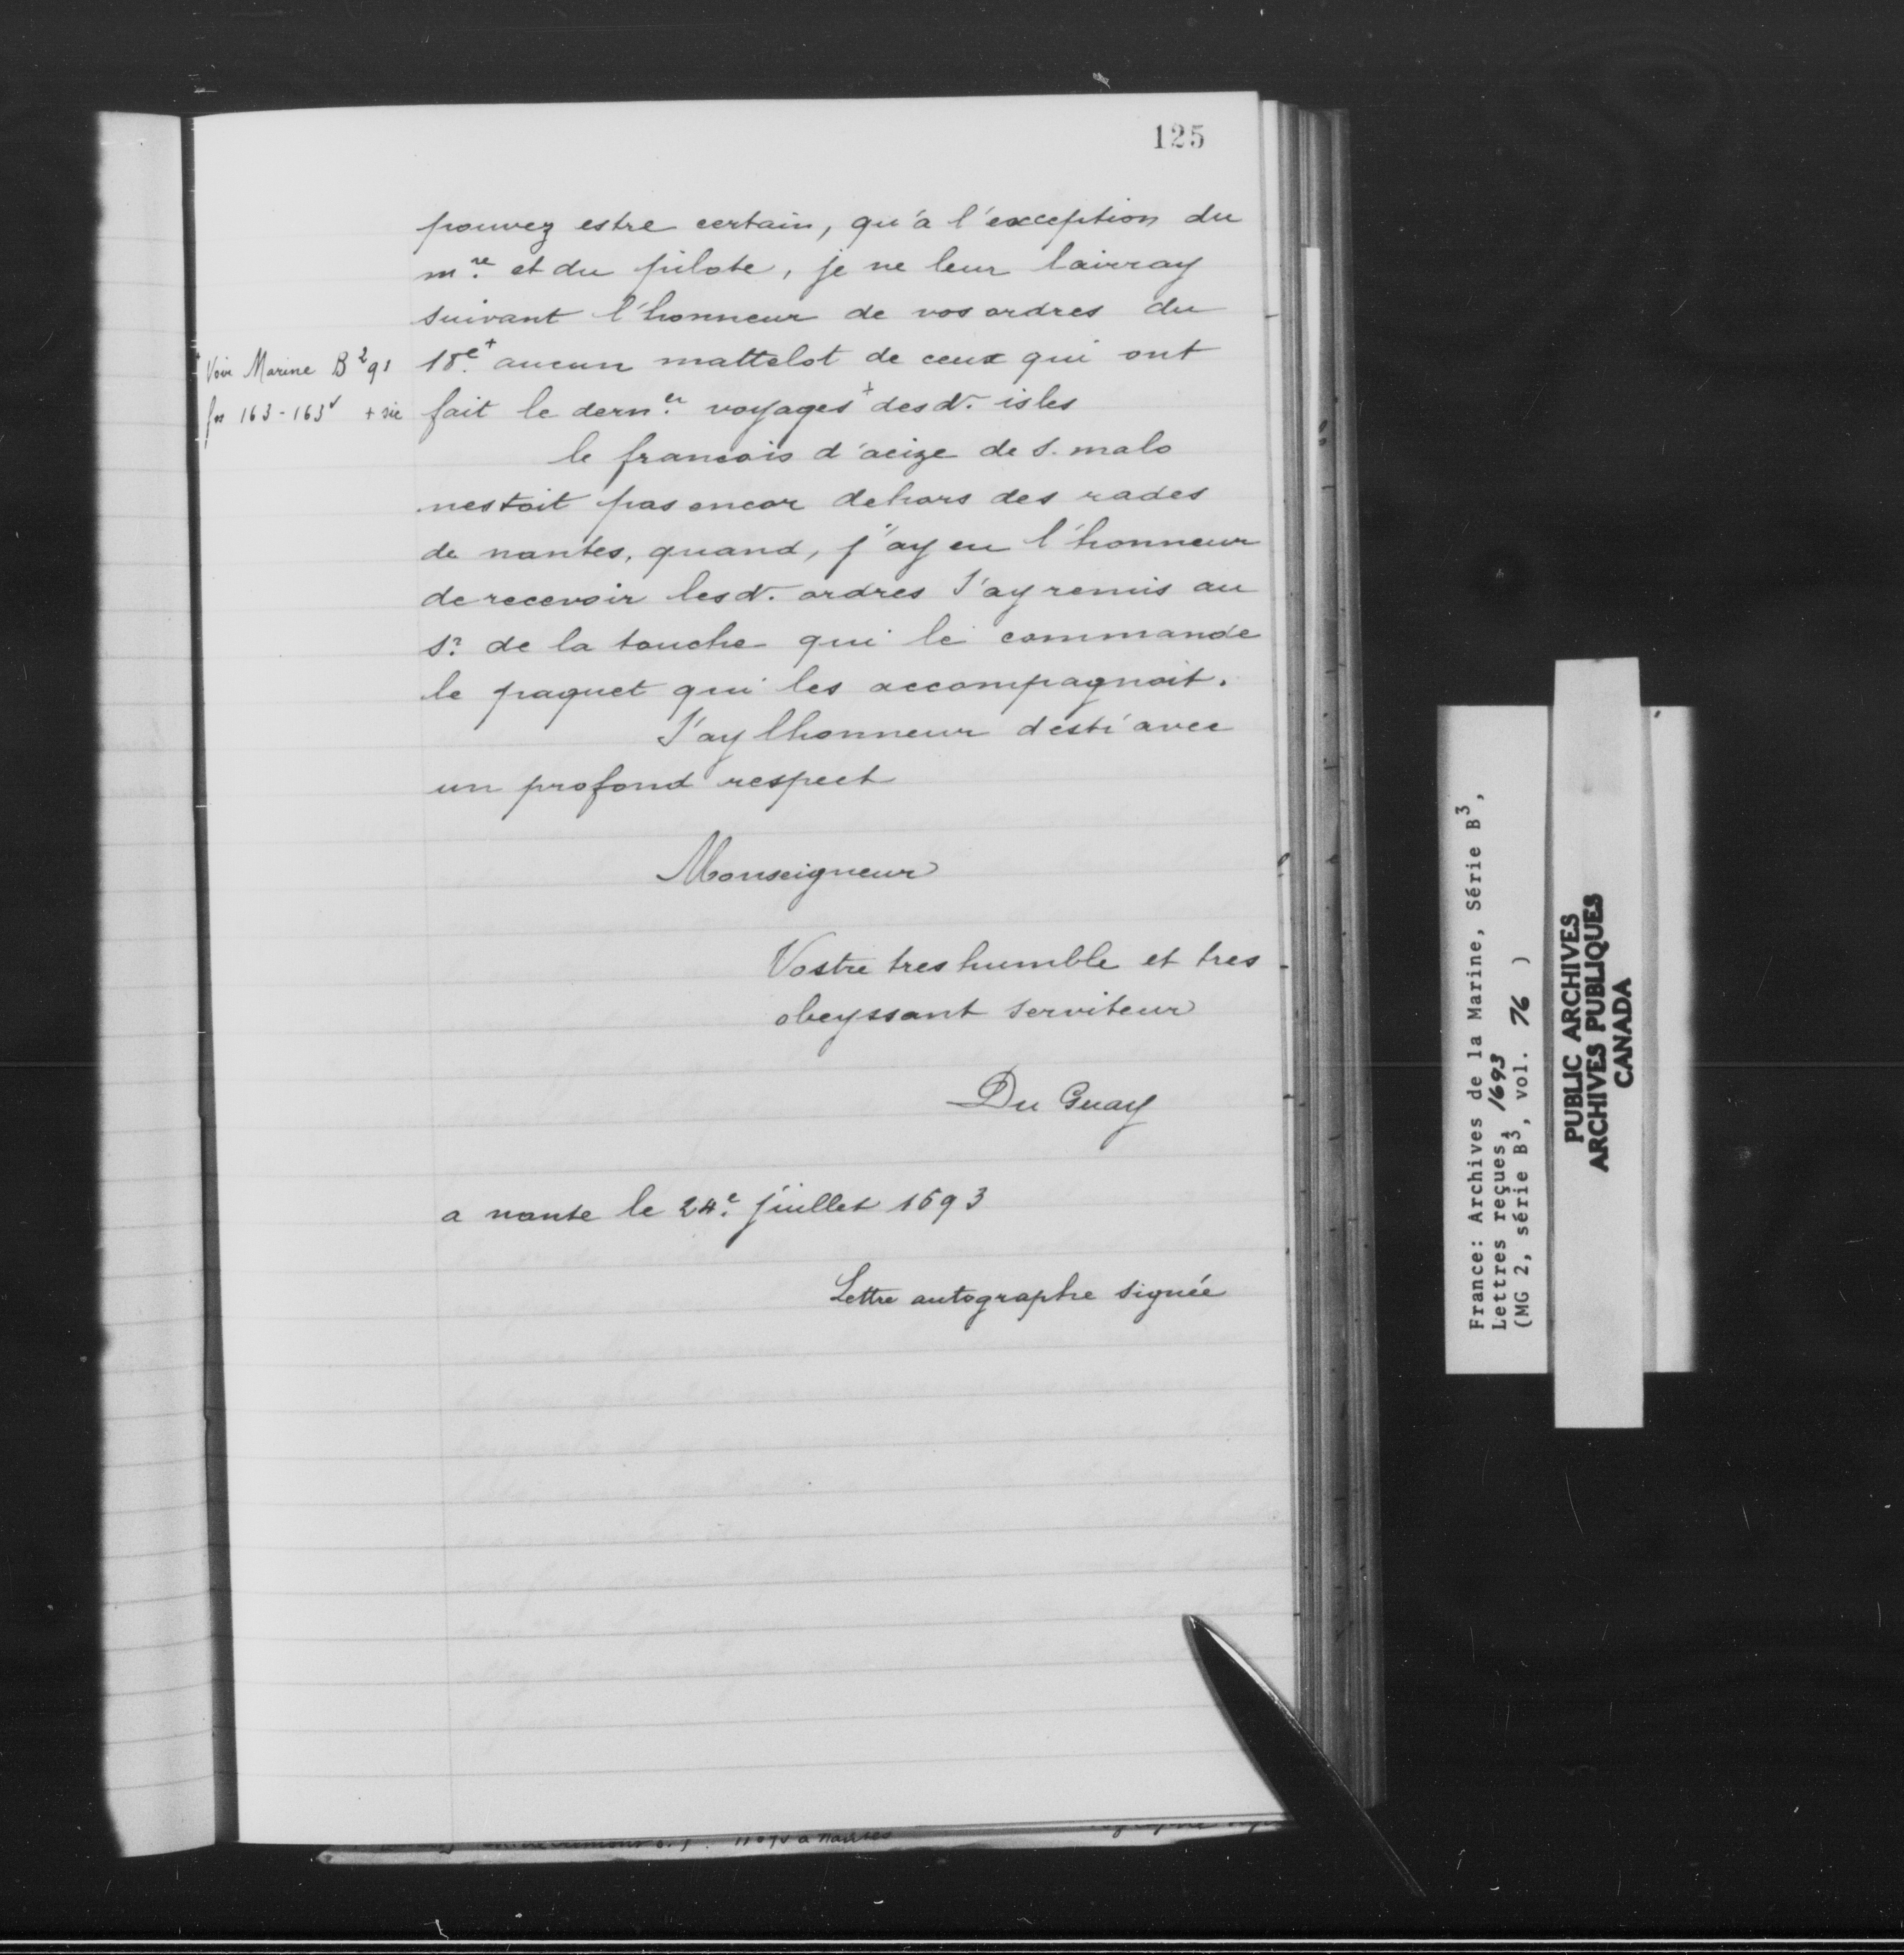 125
pouvez estre certain, qu'à l'exception du
m.re et du pilote, je ne leur lairray
suivant l'honneur de vos ordres du
+ Voir Marine B2 91
18.e+ aucun mattelot de ceux qui ont
fos 163-163v + sic
fait le dern.er voyages+ desd. isles
le francois d'acize de S. malo
nestoit pas encor dehors des rades
de nantes, quand, j'ay eu l'honneur
de recevoir lesd. ordres J'ay remis au
s.r de la touche qui le commande
le paquet qui les accompagnoit.
J'ay lhonneur desti avec
un profond respect
Monseigneur
Vostre tres humble et tres
obeyssant serviteur
Du Guay
a nante le 24.e juillet 1693
Lettre autographe signée
France: Archives de la Marine, Série B3,
Lettres reçues, 1693
(MG 2, série B3, vol. 76 )
PUBLIC ARCHIVES
ARCHIVES PUBLIQUES
CANADA